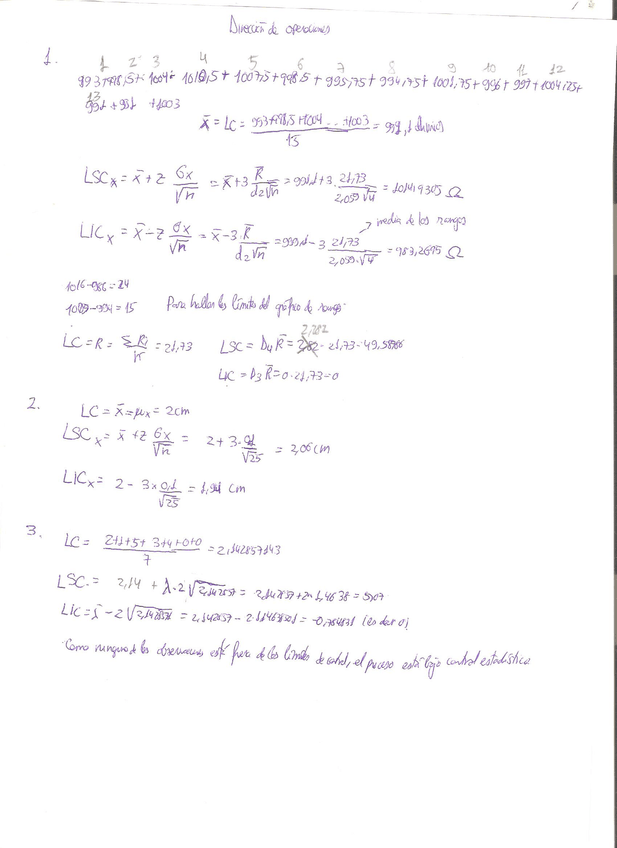 Dirección de operaciones
1.
1 2 3 4 5 6 7 8 9 10 11 12
993+998,5+ 1004+ 1010,5 + 1007,5 + 998,5 + 995,75 + 994,75 + 1001,75 + 996 + 997 + 1004,25 +
13
991 + 991 + 1003
x̄ = LC = 993+998,5+1004 ... +1003 / 15 = 999,1 ohmios
LSCx = x̄ + z σx/√n = x̄ + 3 R̄/d₂√n = 999,1 + 3 · 21,73/2,059√4 = 1014,9305 Ω
LICx = x̄ - z σx/√n = x̄ - 3 · R̄/d₂√n = 999,1 - 3 21,73/2,059·√4 = 983,2695 Ω
→ media de los rangos
1016-986=24
1009-994=15 Para hallar los límites del gráfico de rangos
2,282
LC = R = ΣRi/n = 21,73 LSC = D₄ R̄ = · 21,73 = 49,58786
LIC = D₃ R̄ = 0·21,73=0
2.
LC = x̄ = μx = 2cm
LSCx = x̄ + z σx/√n = 2 + 3 · 0,1/√25 = 2,06 cm
LICx = 2 - 3 × 0,1/√25 = 1,94 cm
3.
LC = 2+1+5+ 3+4+0+0 / 7 = 2,142857143
LSC = 2,14 + λ · 2√2,142857 = 2,142857 + 2 · 1,4638 = 5,07
LIC = λ̄ - 2√2,142857 = 2,142857 - 2 · 1,1463850 = -0,784831 (es dar 0)
Como ninguno de las observaciones está fuera de los límites de control, el proceso está bajo control estadístico